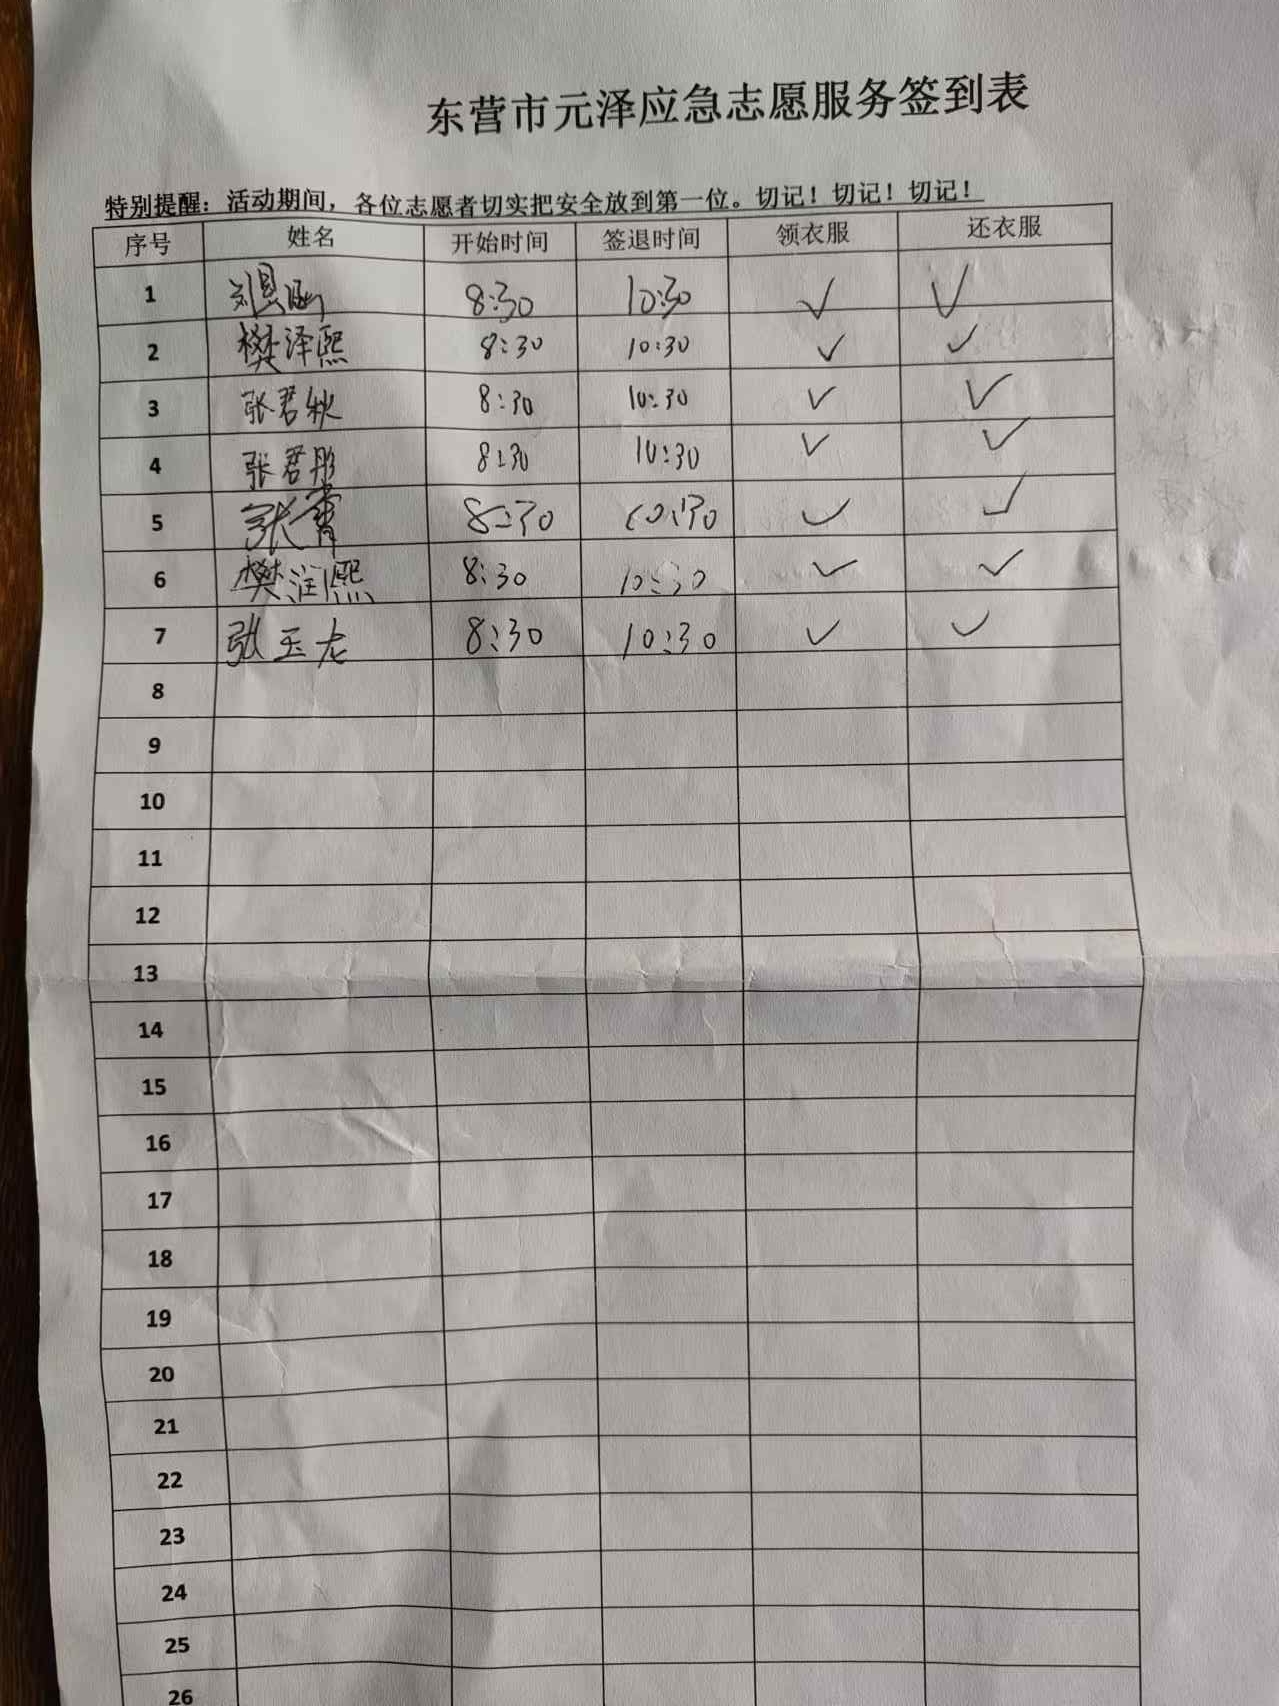 东营市元泽应急志愿服务签到表
特别提醒：活动期间，各位志愿者切实把安全放到第一位。切记！切记！切记！
序号 姓名 开始时间 签退时间 领衣服 还衣服
1 刘恩涵 8:30 10:30 ✓ ✓
2 樊泽熙 8:30 10:30 ✓ ✓
3 张君秋 8:30 10:30 ✓ ✓
4 张君彤 8:30 10:30 ✓ ✓
5 张霄 8:30 10:30 ✓ ✓
6 樊润熙 8:30 10:30 ✓ ✓
7 张玉龙 8:30 10:30 ✓ ✓
8
9
10
11
12
13
14
15
16
17
18
19
20
21
22
23
24
25
26